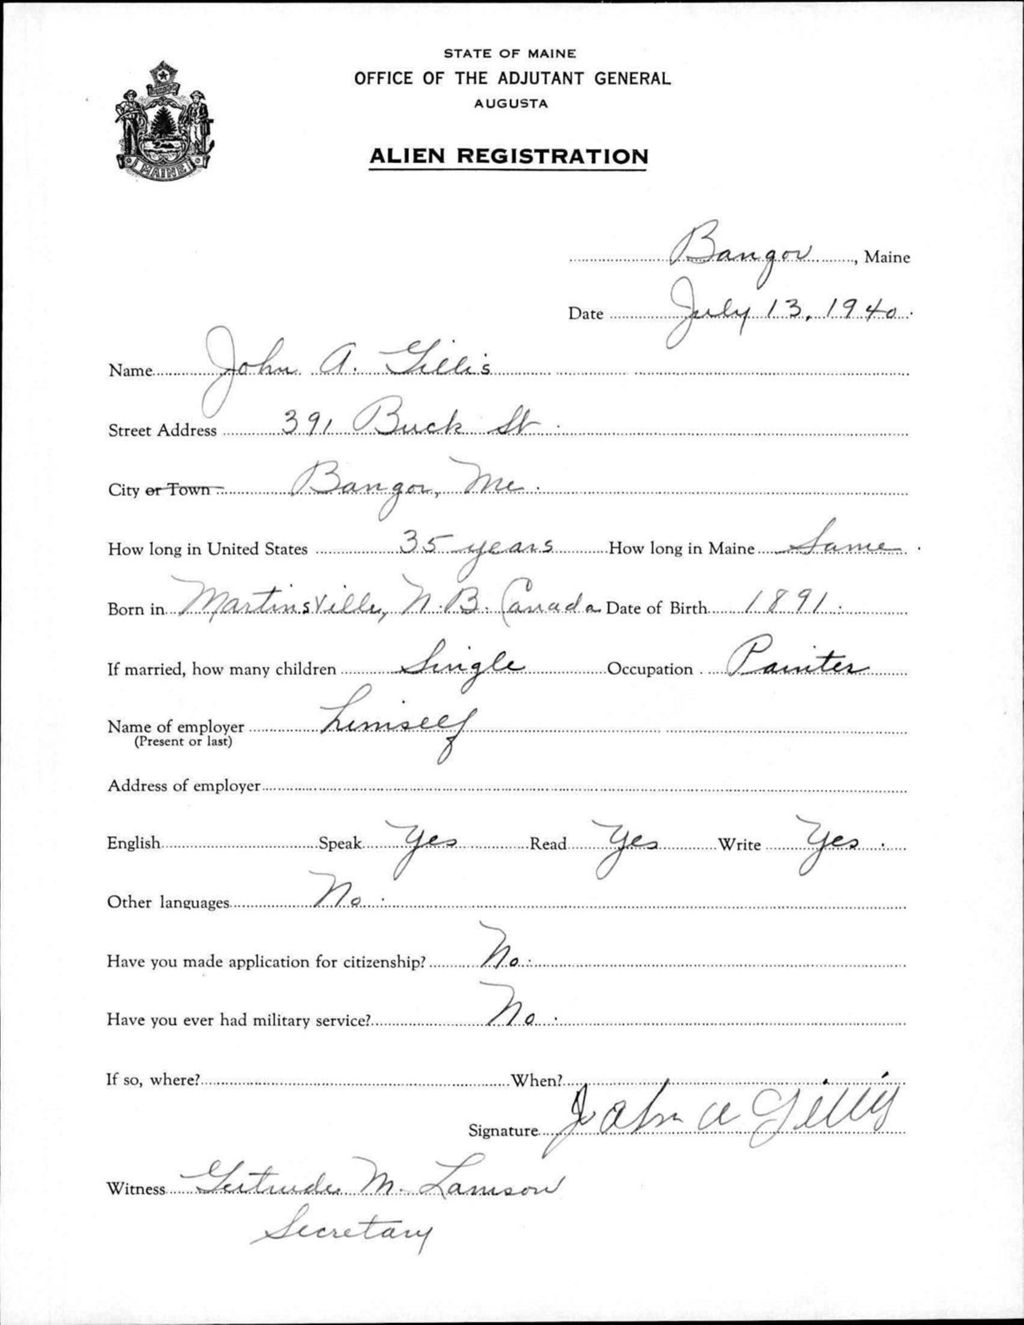 STATE OF MAINE
OFFICE OF THE ADJUTANT GENERAL
AUGUSTA
ALIEN REGISTRATION
MAINE
Bangor, Maine
Date July 13, 1940.
Name John A. Gillis
Street Address 391 Buck St.
City or Town Bangor, Me.
How long in United States 35 years How long in Maine Same.
Born in Martinsville, N.B. Canada Date of Birth 1891.
If married, how many children Single Occupation Painter
Name of employer himself
(Present or last)
Address of employer
English Speak Yes Read Yes Write Yes.
Other languages No.
Have you made application for citizenship? No.
Have you ever had military service? No.
If so, where? When?
Signature John A Gillis
Witness Gertrude M. Lamson
Secretary